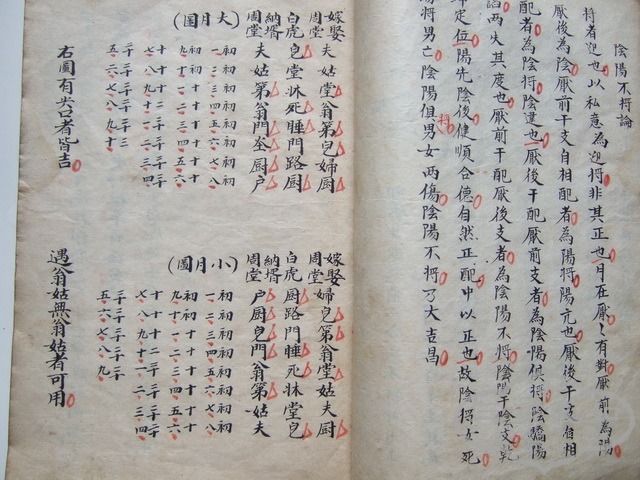 陰陽不將論
將者迎也以私意為迎將非其正也月在厭厭有對厭前為陽
厭後為陰厭前干支自相配者為陽將陽亢也厭後干支自相
配者為陰將陰遣也厭後干配厭前支者為陰陽俱將陰驕陽
諂兩失其度也厭前干配厭後支者為陰陽不將陽干陰支乾
坤定位陽先陰後健順合德自然正配中以正也故陰將女死
陽將男亡陰陽俱將男女兩傷陰陽不將乃大吉昌
嫁娶周堂 夫姑堂翁第皂婦厨
白虎 皂堂牀死睡門路厨
納婿周堂 夫姑第翁門厨户
(大月圖)
初一 初二 初三 初四 初五 初六 初七 初八
初九 初十 十一 十二 十三 十四 十五 十六
十七 十八 十九 二十 廿一 廿二 廿三 廿四
廿五 廿六 廿七 廿八 廿九 三十
右圖有者皆吉
嫁娶周堂 婦皂第翁堂姑夫厨
白虎 厨路門睡死牀堂皂
納婿周堂 户厨皂門翁第姑夫
(小月圖)
初一 初二 初三 初四 初五 初六 初七 初八
初九 初十 十一 十二 十三 十四 十五 十六
十七 十八 十九 二十 廿一 廿二 廿三 廿四
廿五 廿六 廿七 廿八 廿九
遇翁姑無翁姑者可用